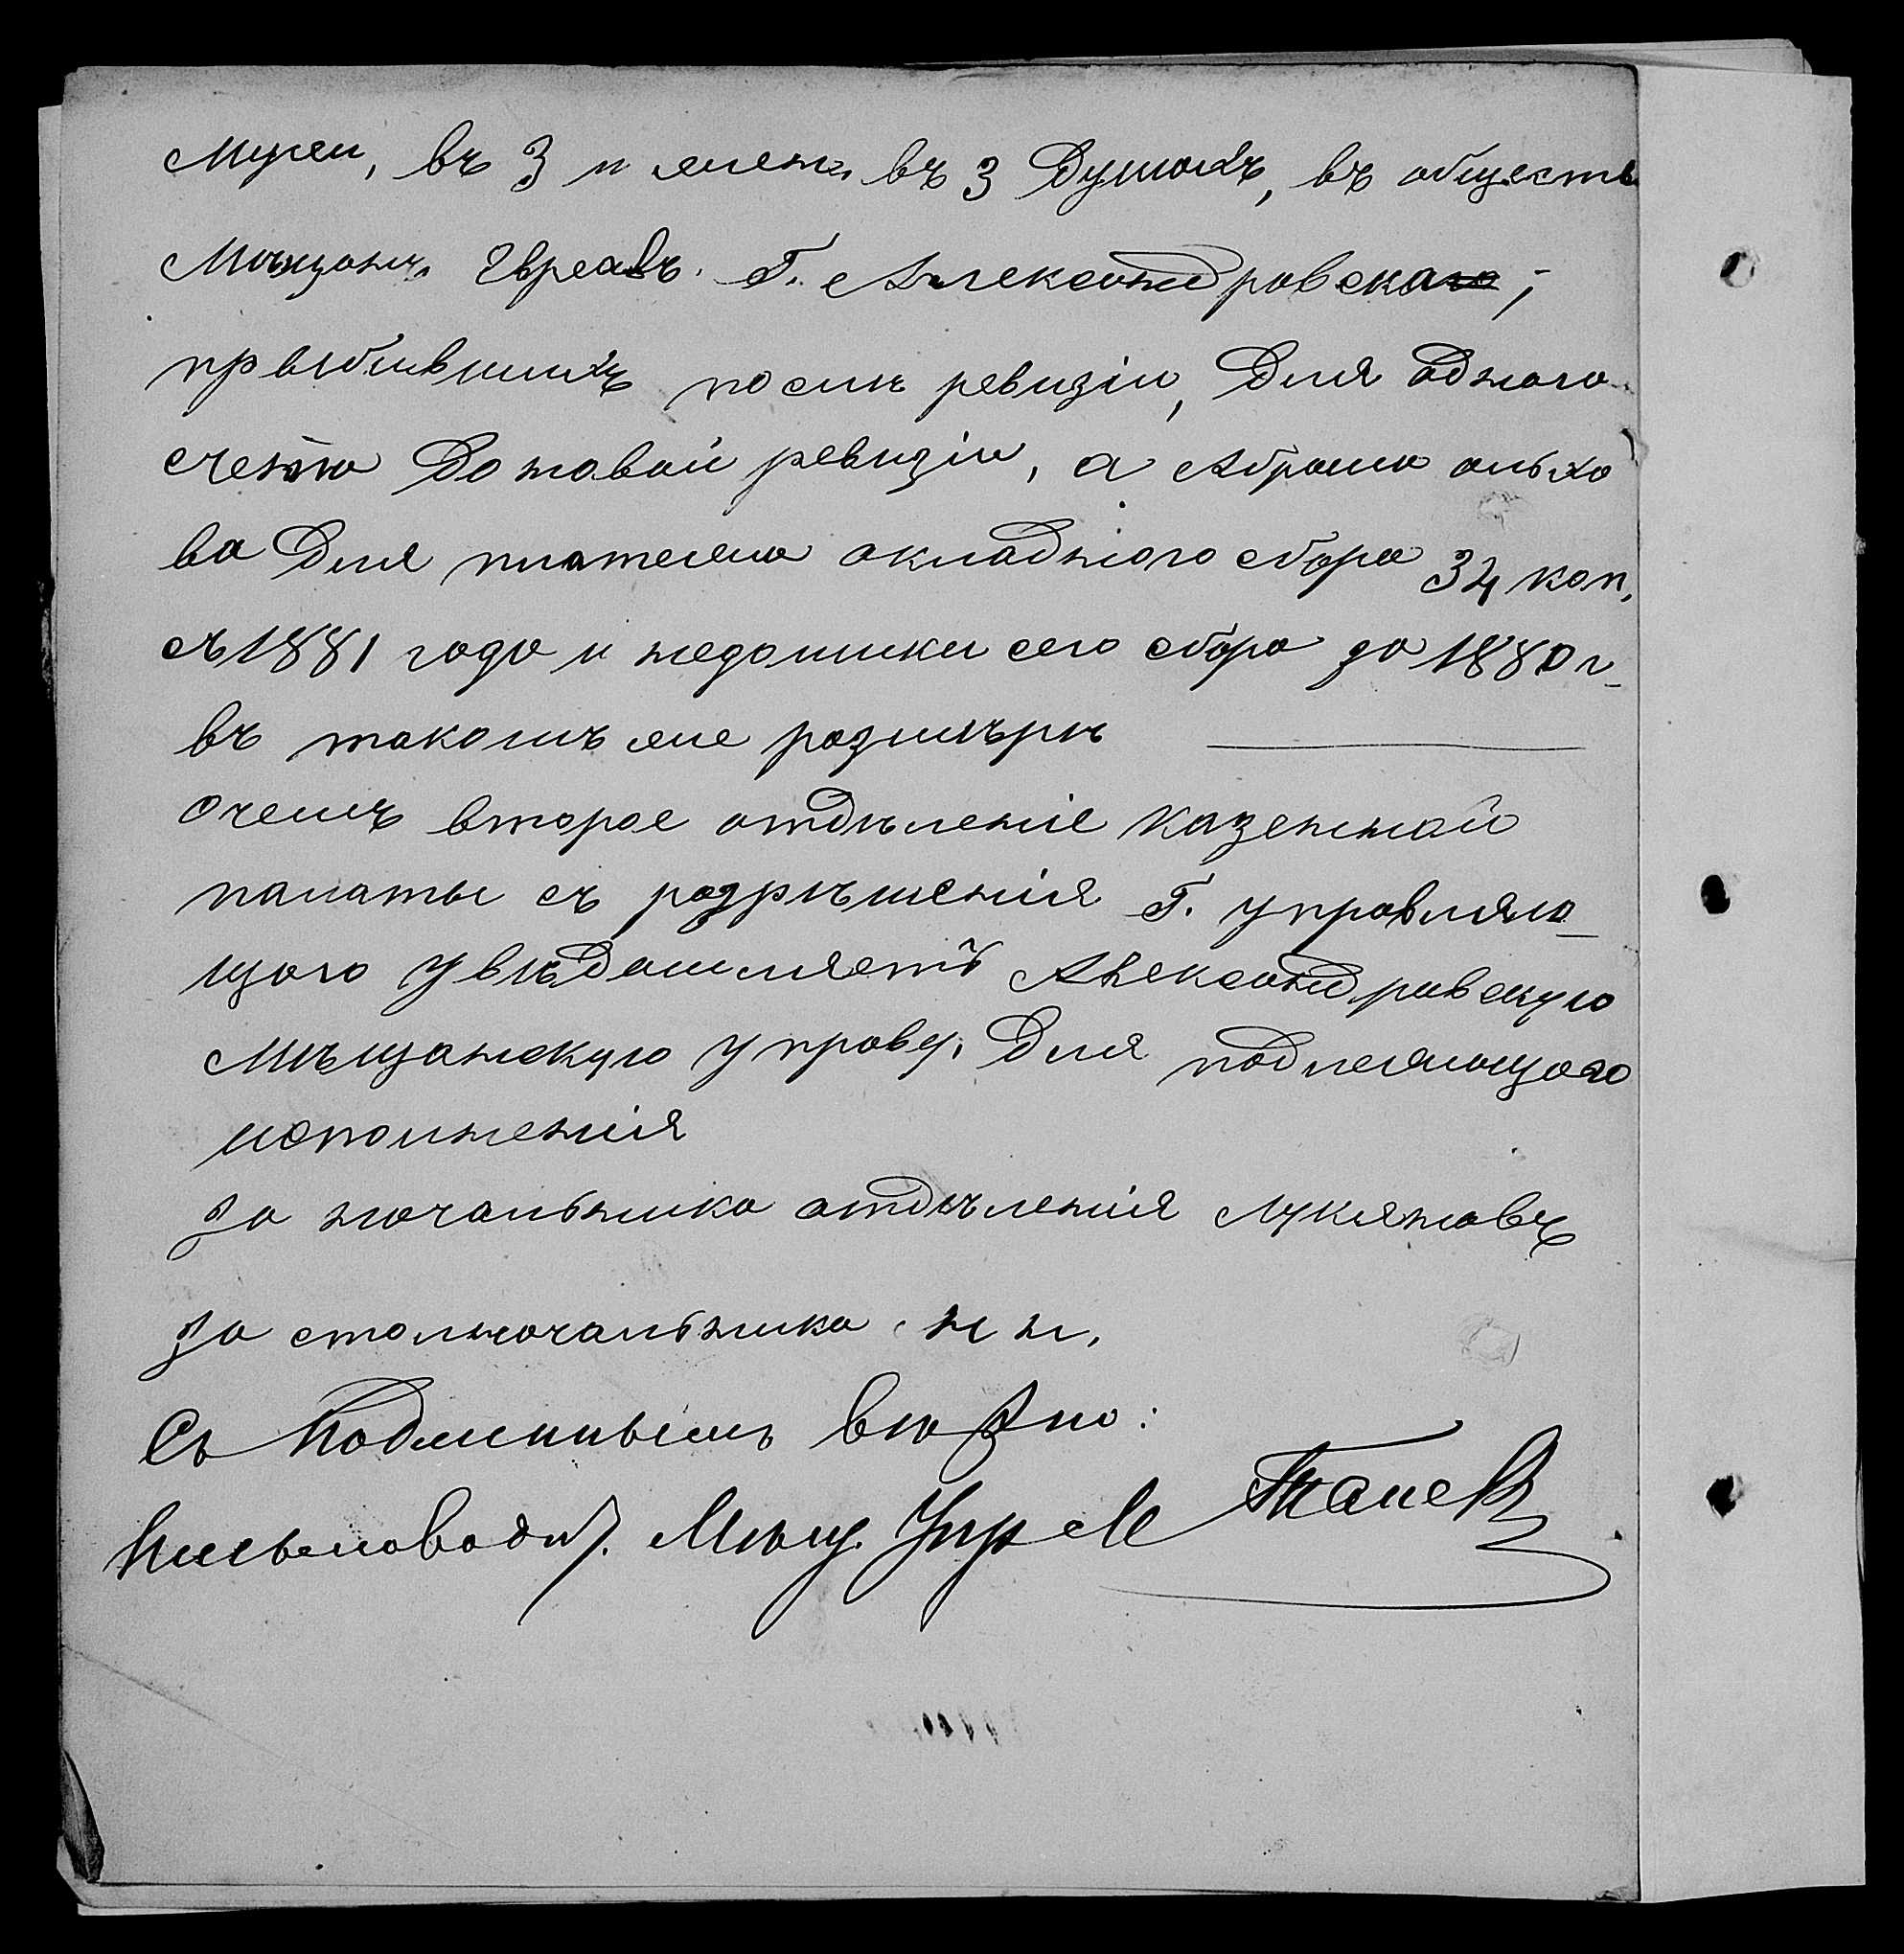 Мужен, въ 3 и женн. въ 3 душахъ, въ общест
Мѣщанъ Евреевъ Г. Александровска;
прыбывшихъ послѣ ревизіи, для одного
счету до новой ревизіи, а Абрама ольхо
ва для платежа окладного сбора 34 коп,
съ 1881 года и недоимки сего сбора за 1880 г
въ такомъ же размѣрѣ
Очемъ второе отдѣленіе казенной
палаты съ разрѣшенія Г. управляю
щого увѣдомляетъ Александровскую
Мѣщанскую управу, для подлежащого
исполненія
За ночальника отдѣленія Лукяновъ
За столночальника н н.
Съ Подлиннымъ вѣрно:
Письмоводит. Мѣщ. Упр